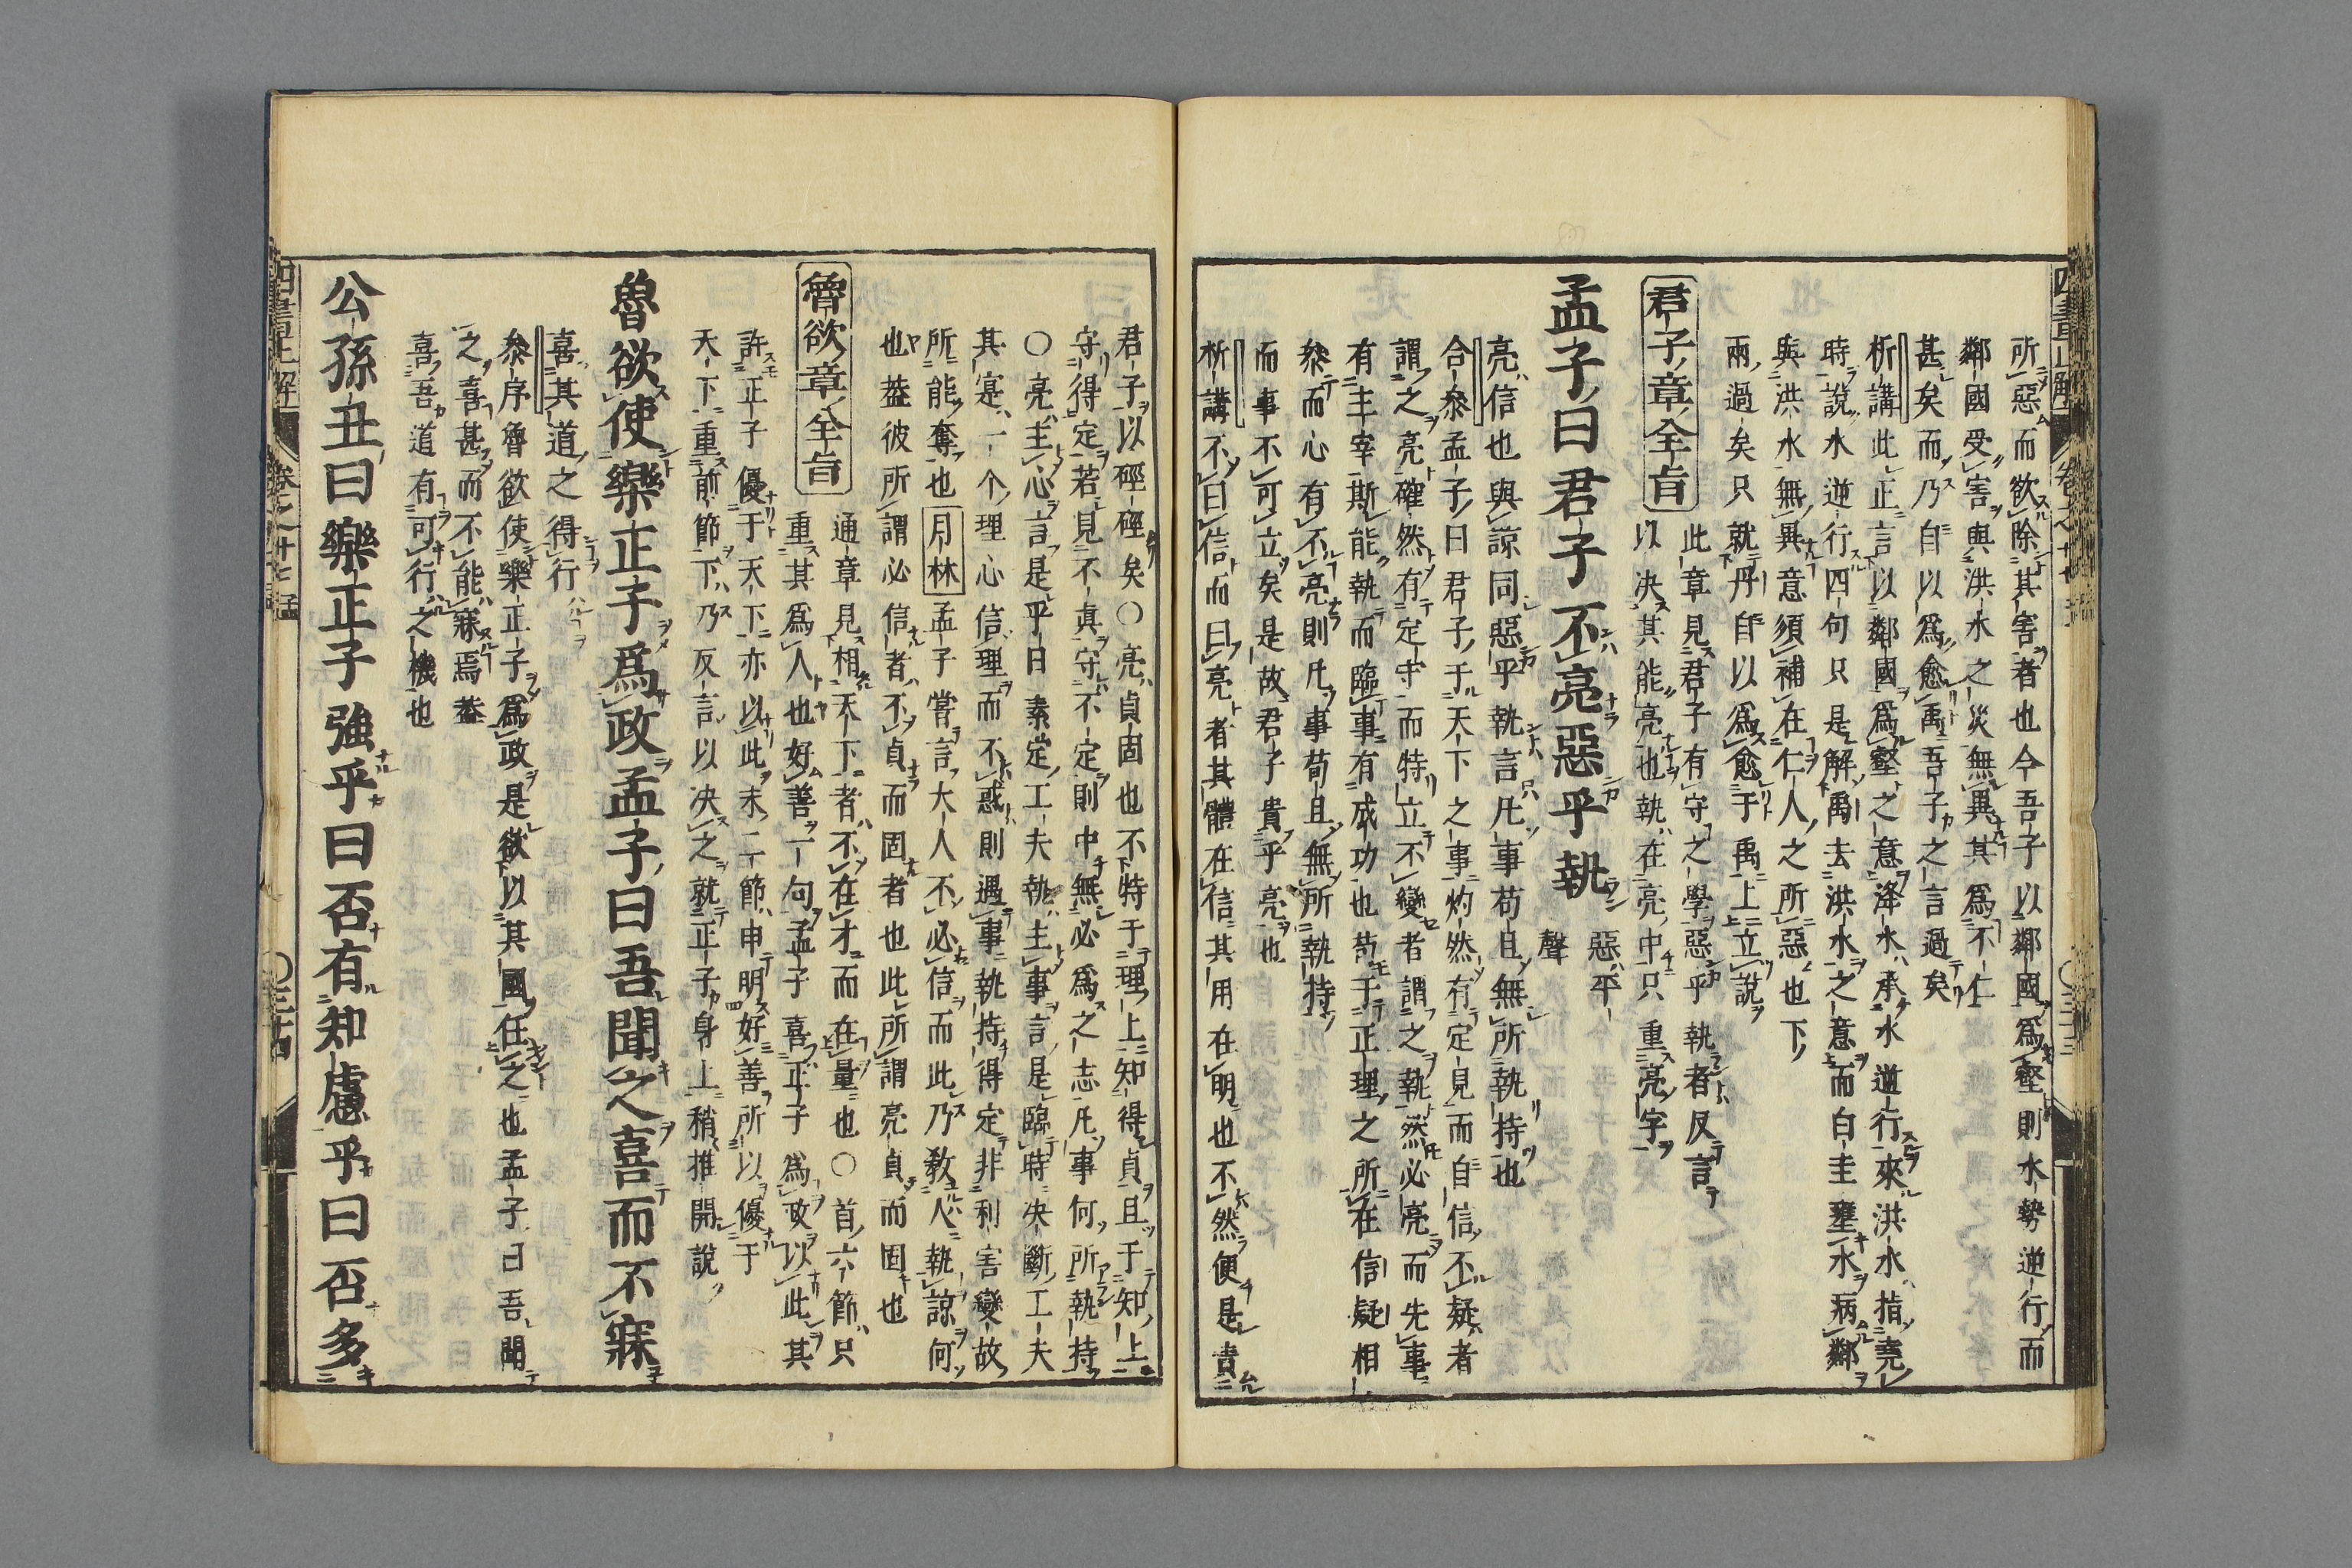 所惡而欲除其害者也今吾子以鄰國爲壑則水勢逆行而
鄰國受害與洪水之災無異其爲不仁
甚矣而乃自以爲愈禹吾子之言過矣
析講此正言以鄰國爲壑之意洚水承水逆行來洪水指堯
時說水逆行四句只是解禹去洪水之意而白圭壅水病鄰
與洪水無異意須補在仁人之所惡也下
兩過矣只就丹自以爲愈于禹上立說
君子章全旨
此章見君子有守之學惡乎執者反言
以決其能亮也執在亮中只重亮字
孟子曰君子不亮惡乎執
惡平聲
亮信也與諒同惡乎執言凡事苟且無所執持也
合參孟子曰君子于天下之事灼然有定見而自信不疑者
謂之亮確然有定守而特立不變者謂之執然必亮而先事
有主宰斯能執而臨事有成功也苟于正理之所在信疑相
參而心有不亮則凡事苟且無所執持
而事不可立矣是故君子貴乎亮也
析講不曰信而曰亮者其體在信其用在明也不然便是貴
君子以硜硜矣○亮貞固也不特于理上知得貞且于知上
守得定若見不真守不定則中無必爲之志凡事何所執持
○亮主心言是平日素定工夫執主事言是臨時決斷工夫
其寔一个理心信理而不惑則遇事執持得定非利害變故
所能奪也月林孟子嘗言大人不必信而此乃敎人執諒何
也葢彼所謂必信者不貞而固者也此所謂亮貞而固也
魯欲章全旨
通章見相天下者不在才而在量也○首六節只
重其爲人也好善一句孟子喜正子爲政以此其
許正子優于天下亦以此末二節申明好善所以優于
天下重前節下乃反言以決之就正子身上稍推開說
魯欲使樂正子爲政孟子曰吾聞之喜而不寐
喜其道之得行
參序魯欲使樂正子爲政是欲以其國任之也孟子曰吾聞
之喜甚而不能寐焉葢
喜吾道有可行之機也
公孫丑曰樂正子強乎曰否有知慮乎曰否多